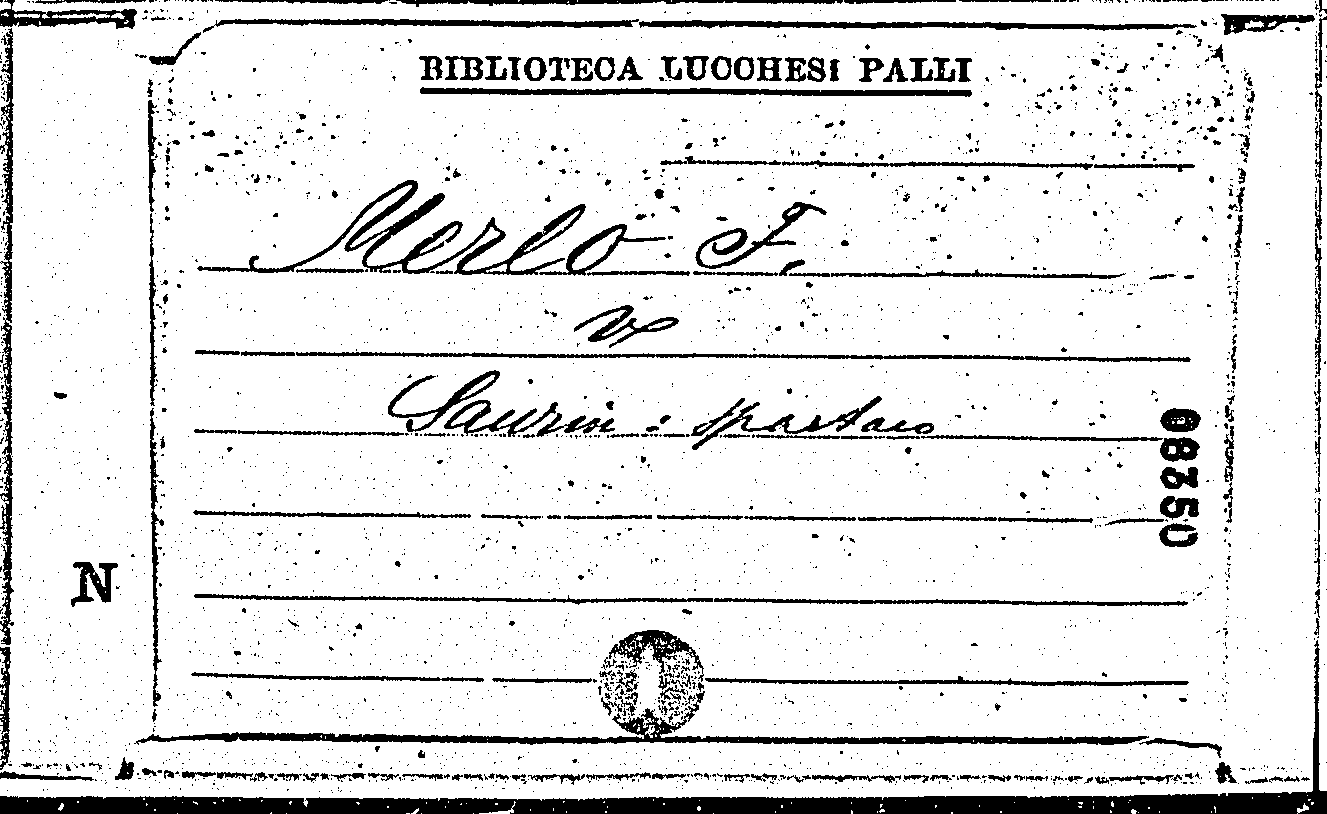 BIBLIOTECA LUCCHESI PALLI
Merlo F.
v
Saurin : Spartaco
08350
N